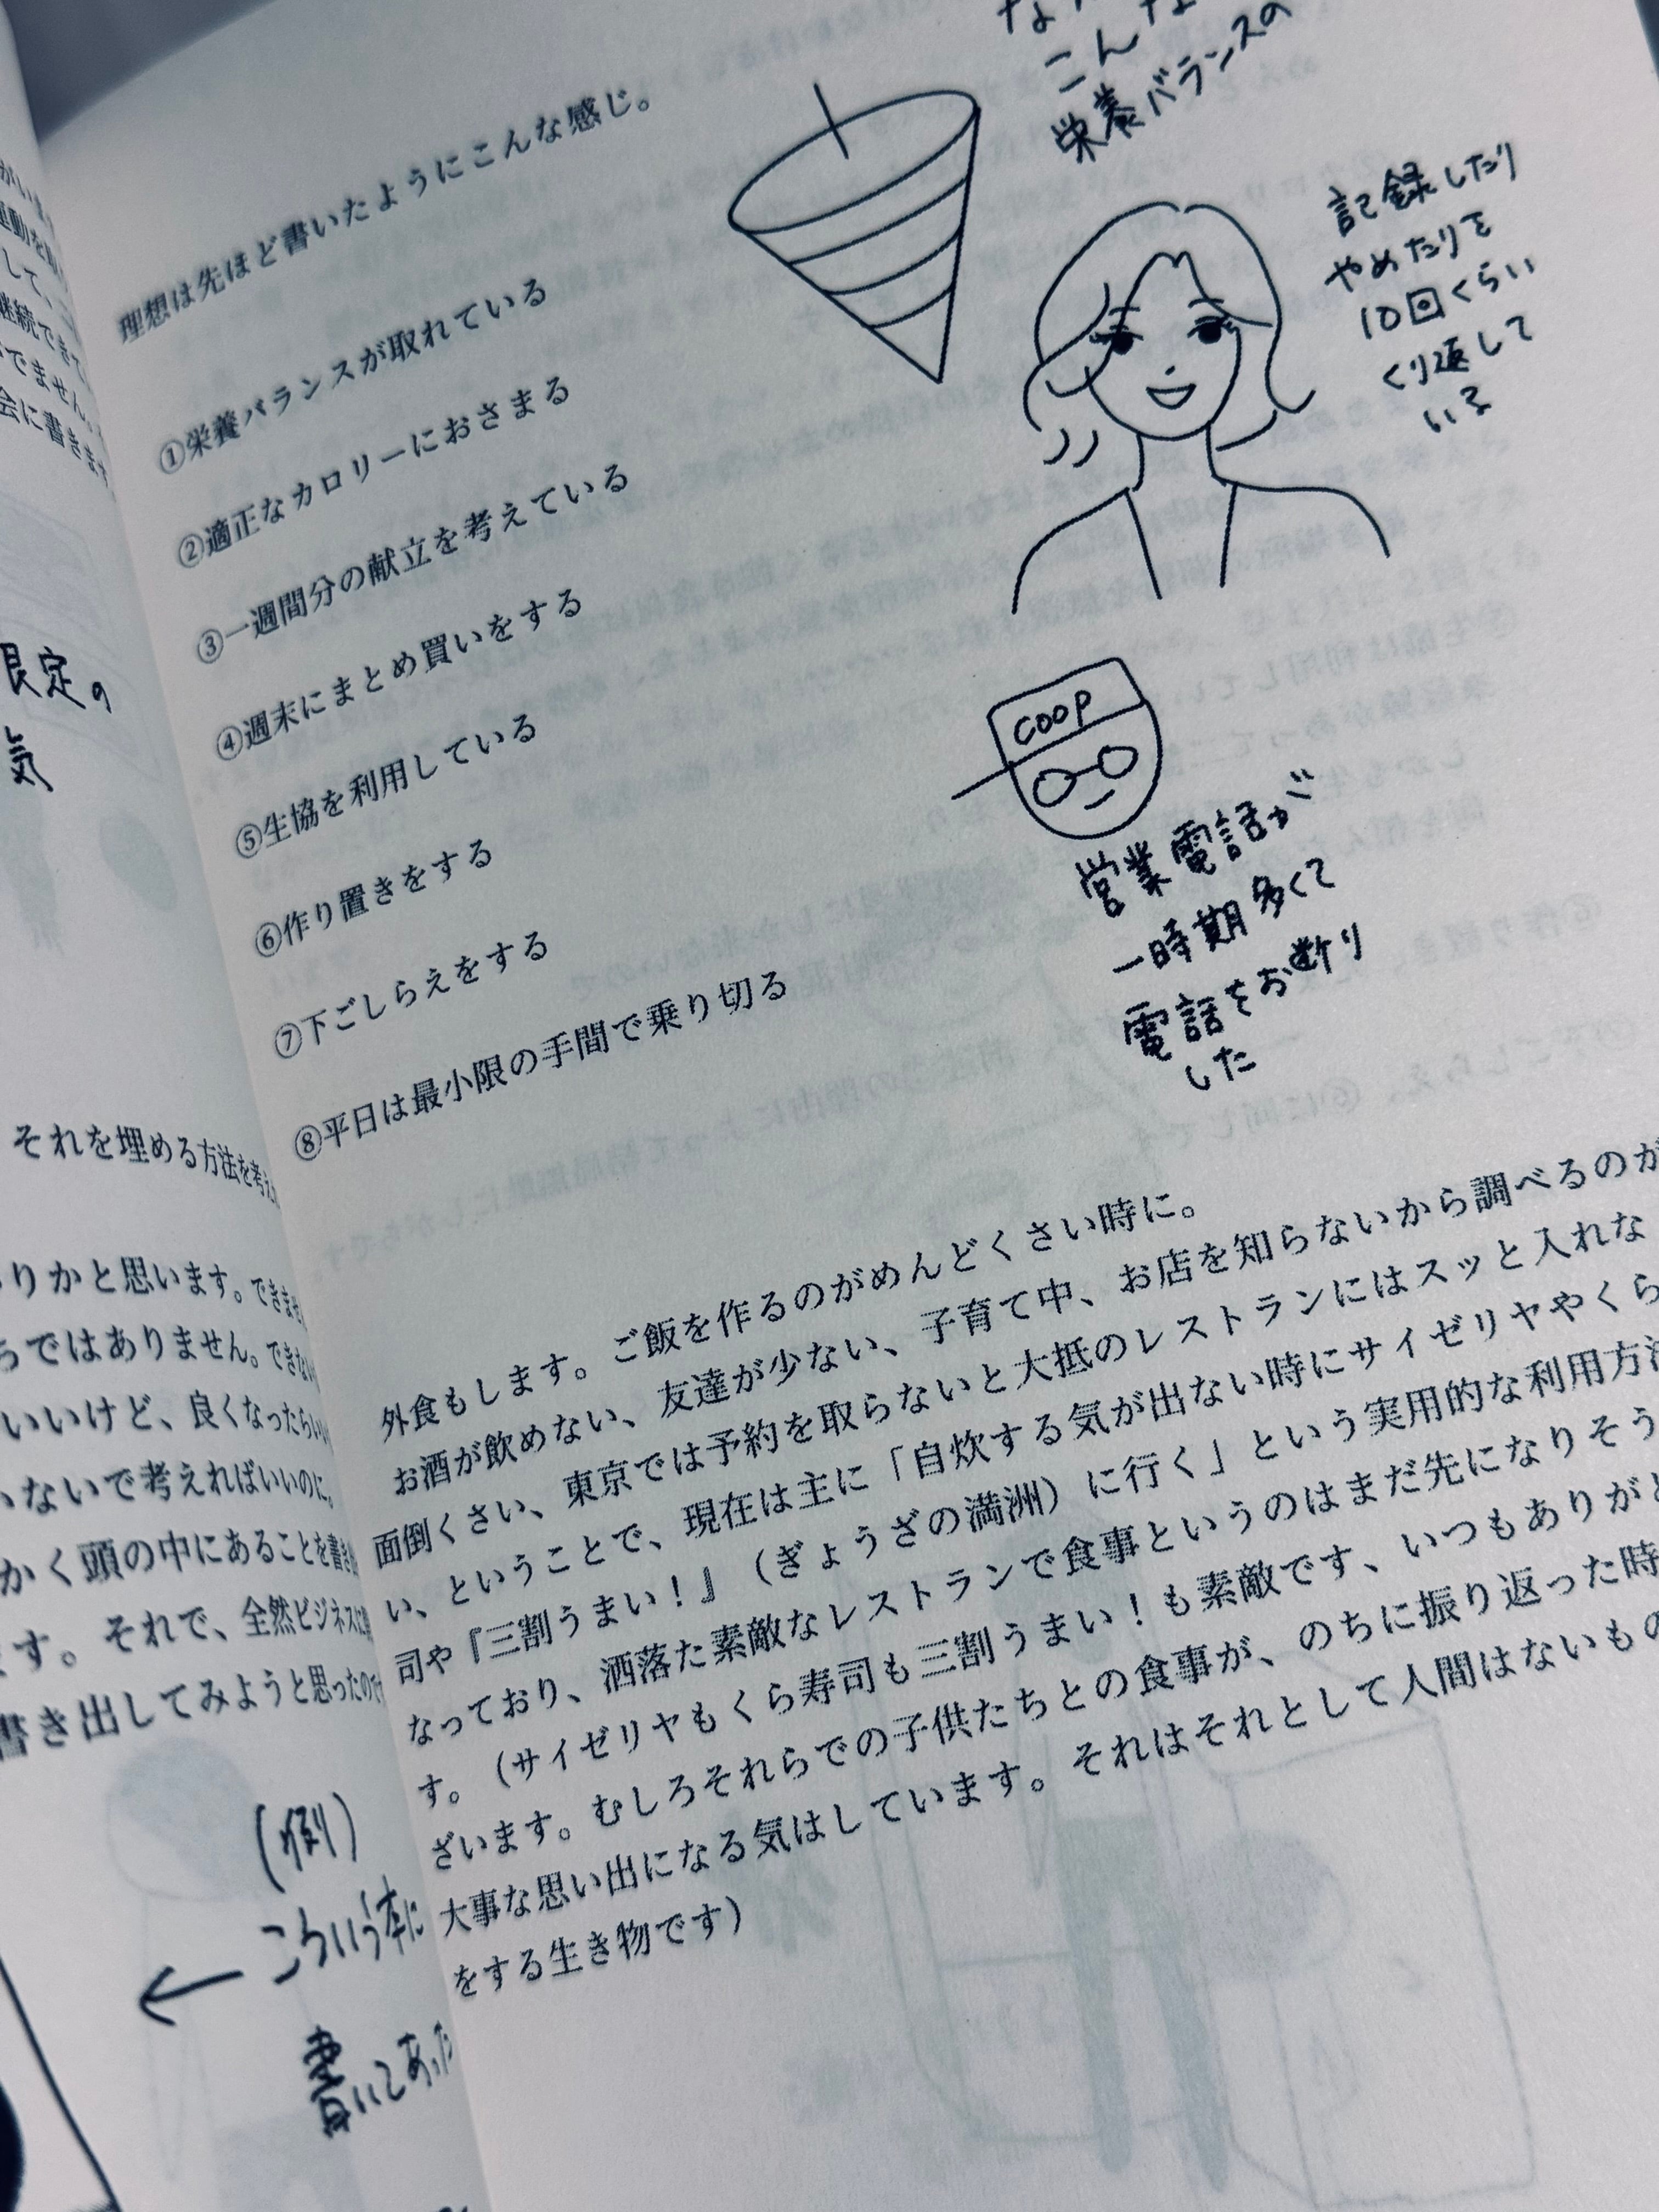 それを埋める方法を考え
りかと思います。できませ
ではありません。できない
いいけど、良くなったらい
ないで考えればいいのに、
かく頭の中にあることを書き
ます。それで、全然ビジネス
書き出してみようと思ったので
(例)
こういう本に
書いてあった
理想は先ほど書いたようにこんな感じ。
①栄養バランスが取れている
②適正なカロリーにおさまる
③一週間分の献立を考えている
④週末にまとめ買いをする
⑤生協を利用している
⑥作り置きをする
⑦下ごしらえをする
⑧平日は最小限の手間で乗り切る
こんな
栄養バランスの
記録したり
やめたりを
10回くらい
くり返して
いる
coop
営業電話が
一時期多くて
電話をお断り
した
外食もします。ご飯を作るのがめんどくさい時に。
お酒が飲めない、友達が少ない、子育て中、お店を知らないから調べるのが
面倒くさい、東京では予約を取らないと大抵のレストランにはスッと入れな
い、ということで、現在は主に「自炊する気が出ない時にサイゼリヤやくら
司や『三割うまい！』（ぎょうざの満洲）に行く」という実用的な利用方法
なっており、洒落た素敵なレストランで食事というのはまだ先になりそう
す。（サイゼリヤもくら寿司も三割うまい！も素敵です、いつもありがと
ざいます。むしろそれらでの子供たちとの食事が、のちに振り返った時
大事な思い出になる気はしています。それはそれとして人間はないもの
をする生き物です）